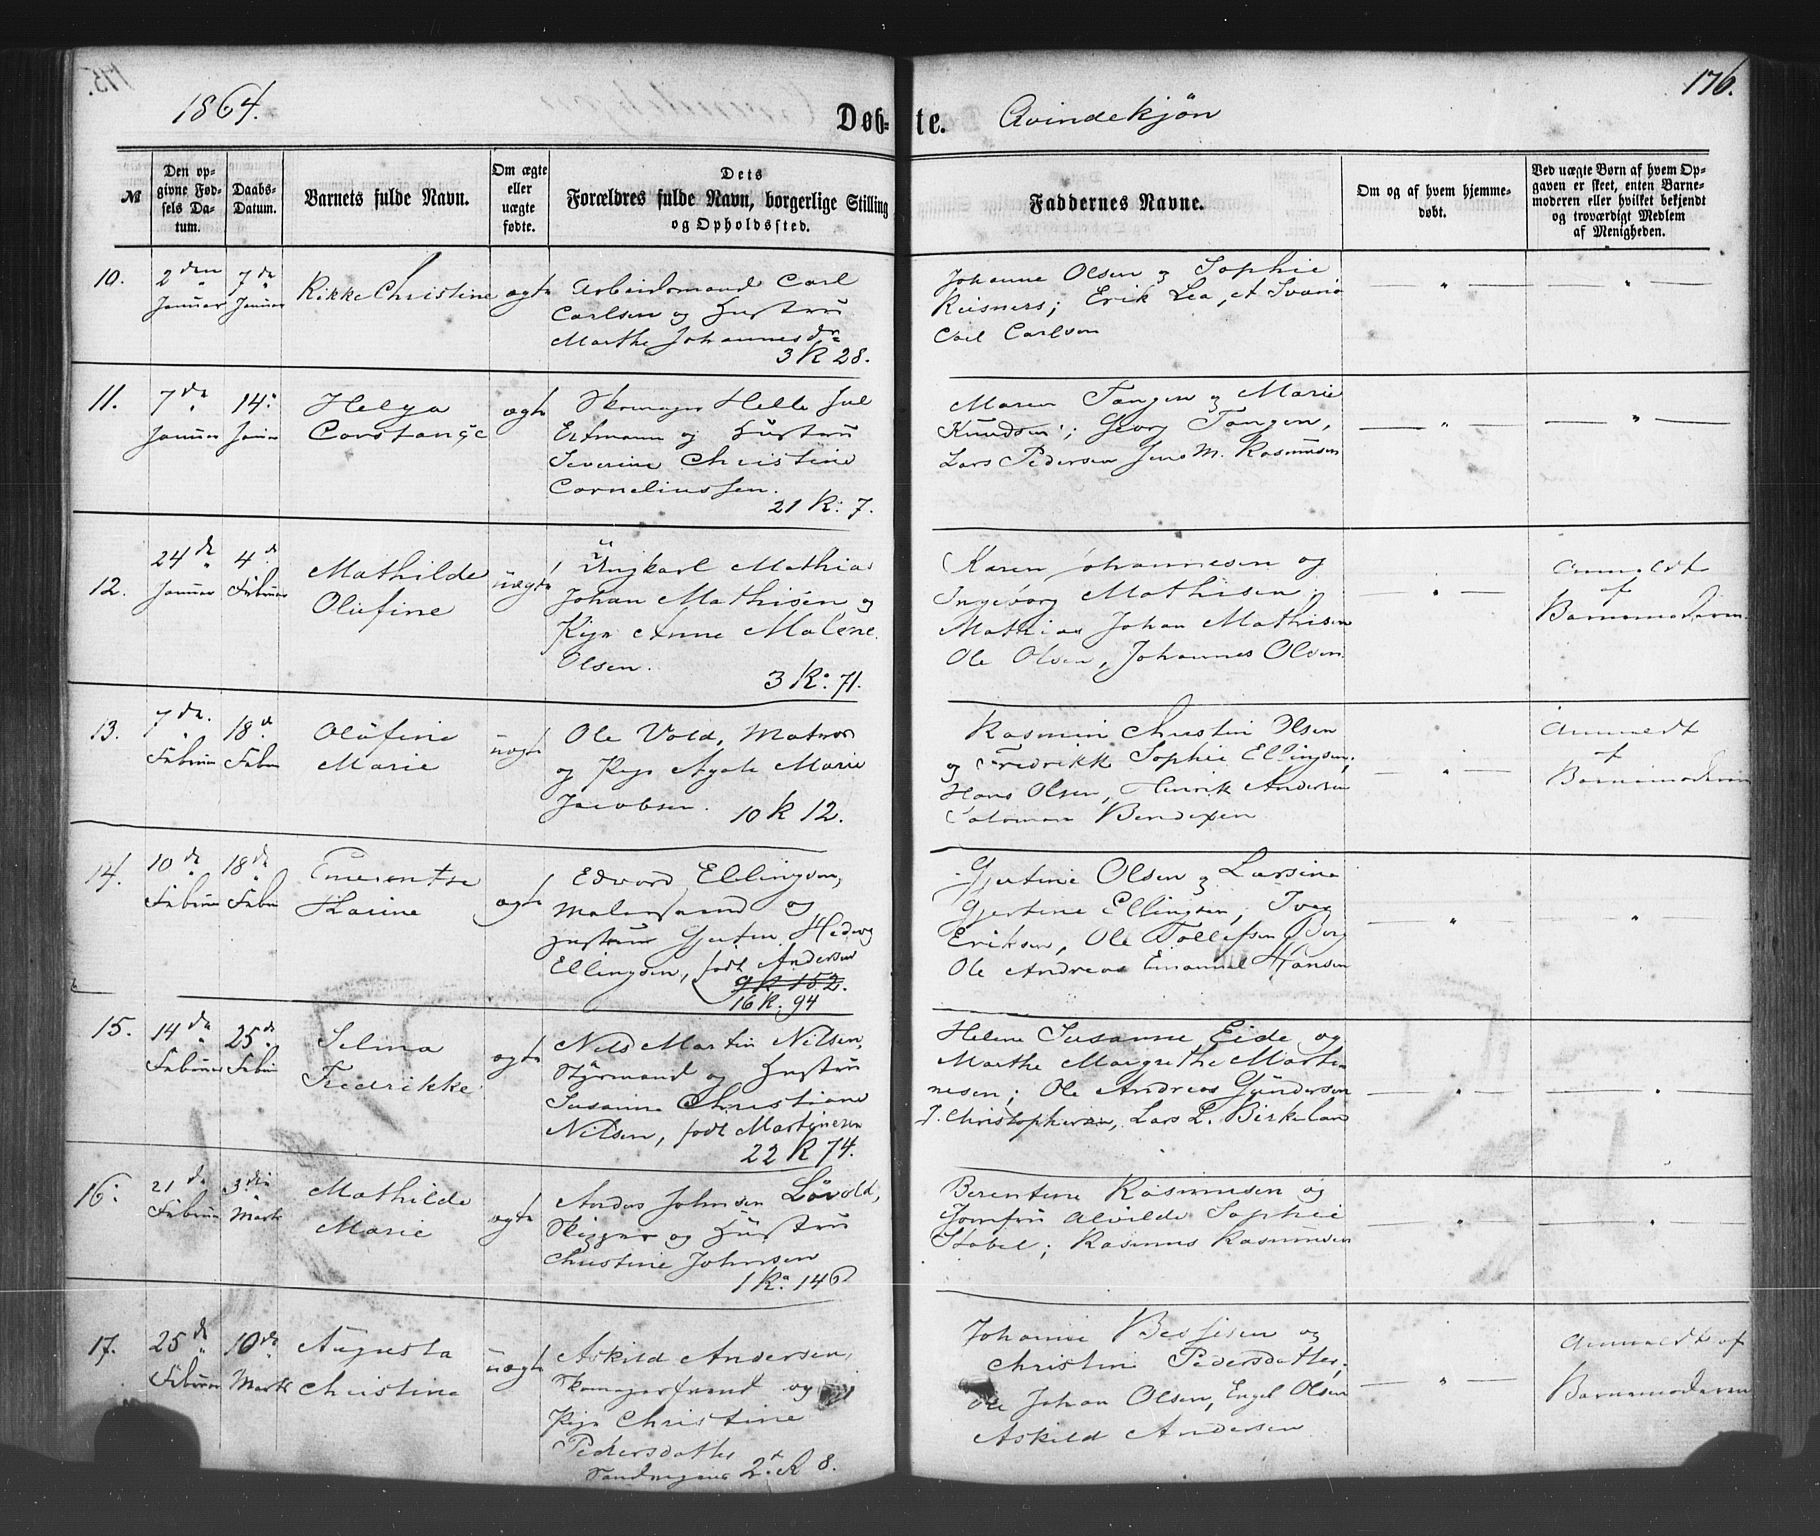 1864.
Døb=te.
Qvindekjøn
176.
175.
№
Den op-
givne Fød-
sels Da-
tum.
Daabs-
Datum.
Barnets fulde Navn.
Om ægte
eller
uægte
fødte.
Dets
Forældres fulde Navn, borgerlige Stilling
og Opholdssted.
Faddernes Navne.
Om og af hvem hjemme-
døbt.
Ved uægte Børn af hvem Op-
gaven er skeet, enten Barne-
moderen eller hvilket bekjendt
og troværdigt Medlem
af Menigheden.
10.
2den
Januar
7de
Januar
Rikke Christine
ægte
Arbeidsmand Carl
Carlsen og Hustru
Marthe Johannesdr
3 K 28.
Johanne Olsen og Sophie
Reisners; Erik Lea,
Carl Carlsen
11.
7de
Januar
14.
Januar
Helga
Constance
ægte
Skomager Helle Jul
Ertmann og Hustru
Severine Christine
Corneliussen.
21 K: 7.
Maren Tangen og Marie
Knudsen; Georg Tangen,
Lars Pedersen Jens M. Rasmussen
12.
24de
Januar
4de
Februar
Mathilde
Olufine
uægte
Ungkarl Mathias
Johan Mathisen og
Pige Anne Malene
Olsen.
3 K: 71.
Karen Johannesen og
Ingeborg Mathisen.
Mathias Johan Mathisen
Ole Olsen, Johannes Olsen
Anmeldt
af
Barnemoderen
13.
7de
Februar
18de
Febr
Olufine
Marie
uægte
Ole Vold, Matros
og Pige Agate Marie
Jacobsen.
10 K 12.
Rasmin Christin Olsen
og Fredrikk Sophie Ellingsen;
Hans Olsen, Henrik Andersen
Salomon Bendixen
Anmeldt
af
Barnemoderen
14.
10de
Februar
18de
Febr
Emerentse
Karine
ægte
Edvard Ellingsen,
Malersvend og
Hustru Gjertine Hedevig
Ellingsen, født Andersen
9 K 152.
16 K. 94
Gjertine Olsen og Larsine
Gjertine Ellingsen, Ivar
Eriksen, Ole Tollefsen Berg
Ole Andreas Emanuel Hansen
15.
14de
Februar
25de
Febr
Selma
Fredrikke
ægte
Nils Martin Nilsen,
Styrmand og Hustru
Susanne Christiane
Nilsen, født Martinesen
22 K 74.
Helene Susanne Eide og
Marthe Margrethe Marti-
nesen; Ole Andreas Gundersen
J. Christophersen, Lars L. Birkeland
16.
21de
Februar
3die
Marts
Mathilde
Marie
ægte
Andas Johnsen Løvold,
Skipper og Hustru
Christine Johnsen
1 K: 146
Berentine Rasmusen og
Jomfru Alvilde Sophie
Stabel; Rasmus Rasmusen
17.
25de
Februar
10de
Marts
Augusta
Christine
uægte
Askild Andersen,
Skomagersvend og
Pige Christine
Pedersdatter
2 K 8.
Johanne Bessesen og
Christine Pedersdatter.
Ole Johan Olsen, Engel Olsen
Askild Andersen
Anmeldt af
Barnemoderen